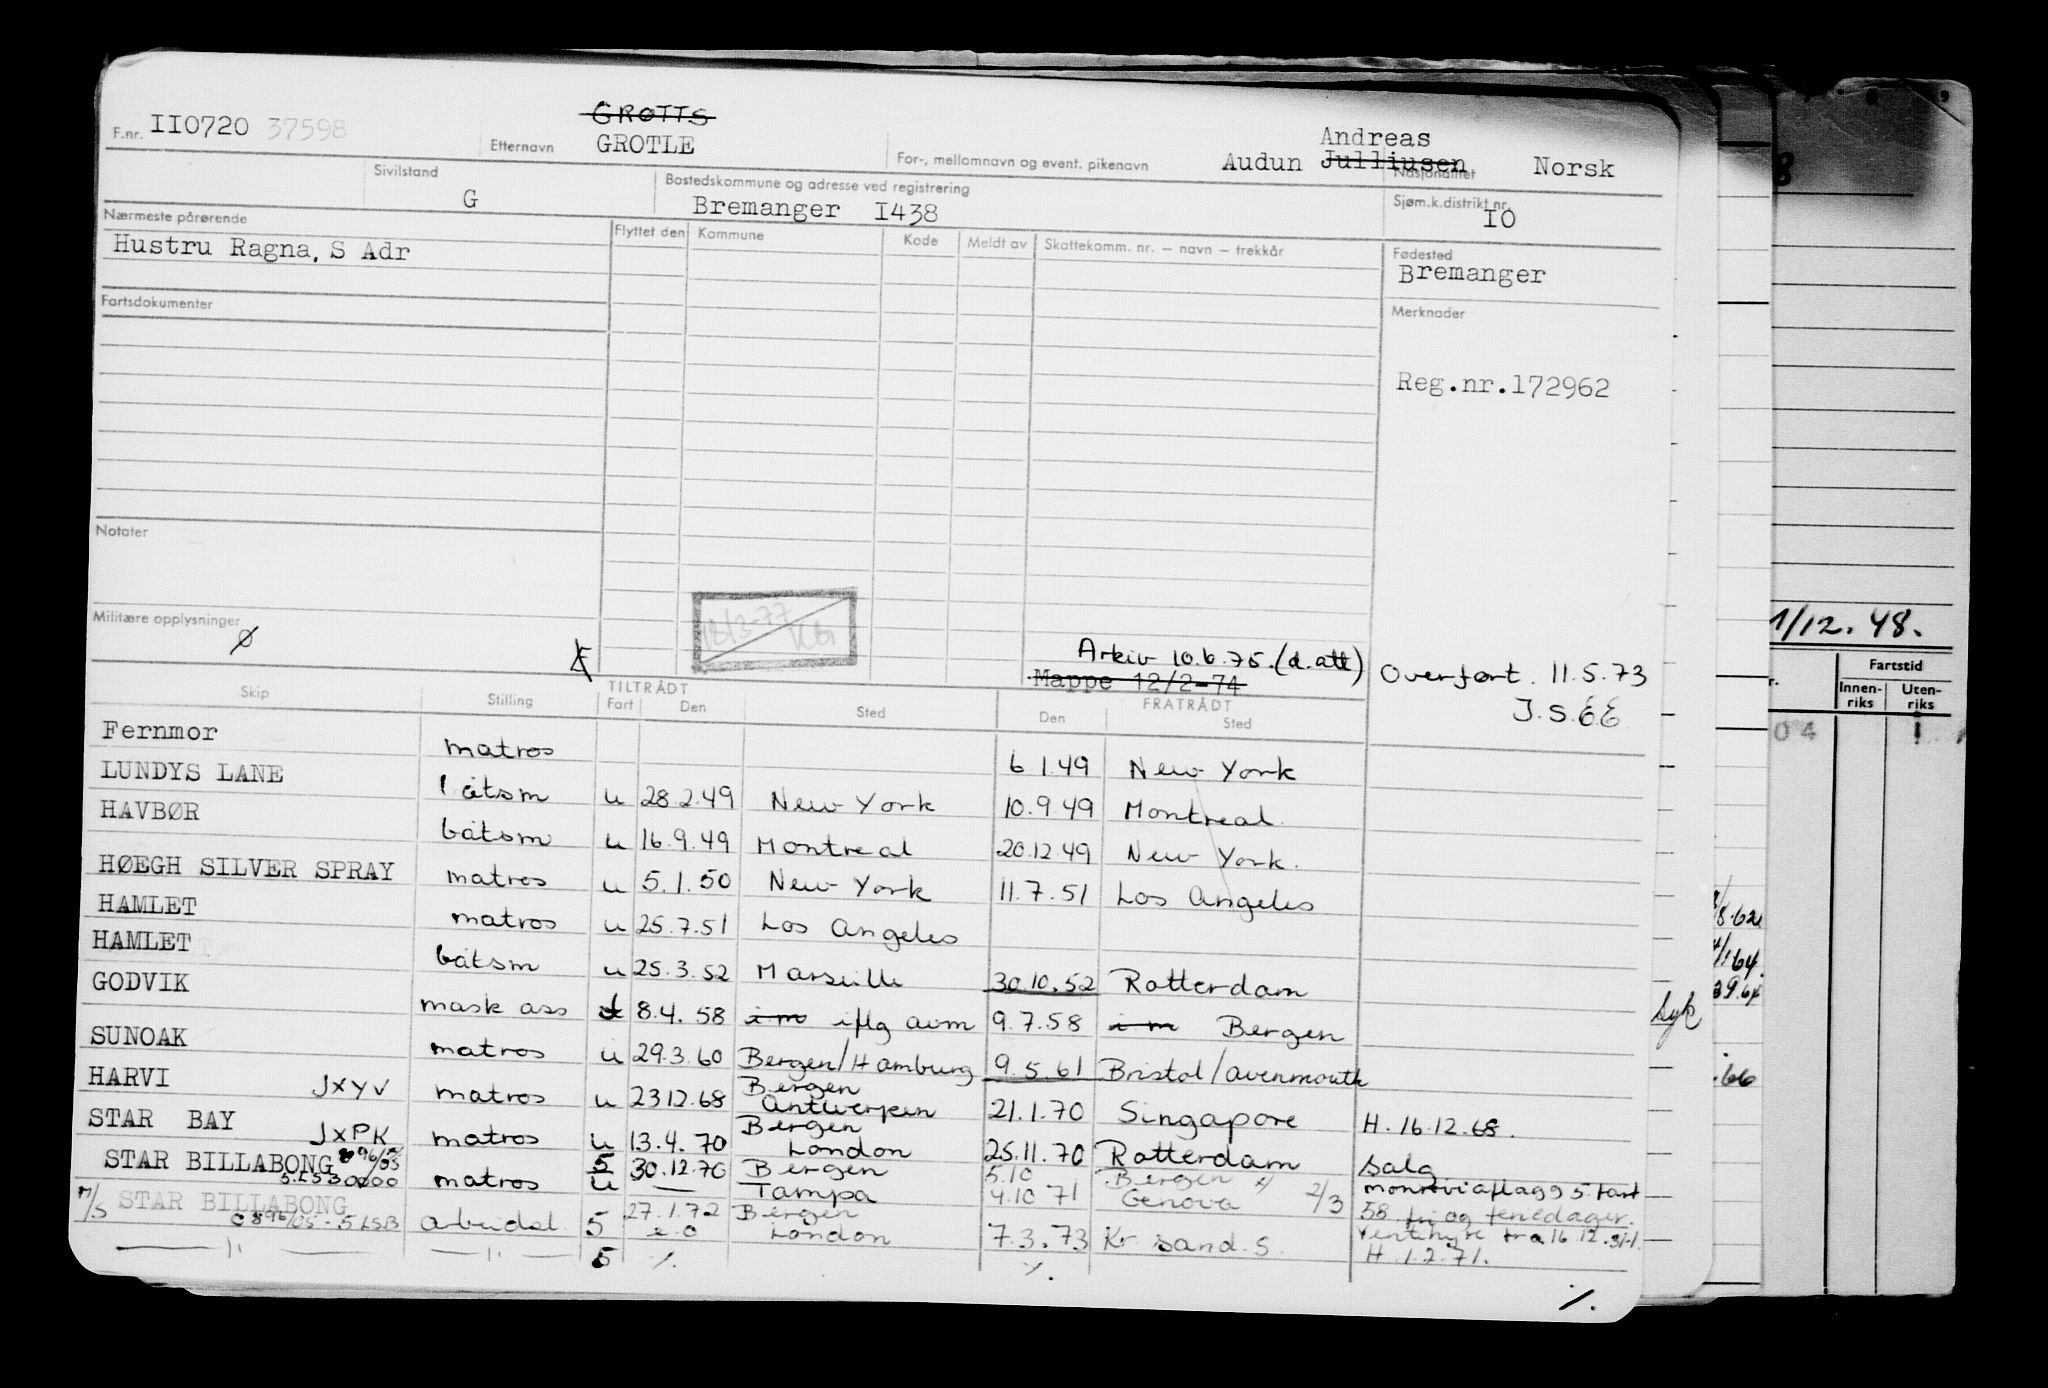 GROTTS
F.nr. II0720 37598 Etternavn GROTLE For-, mellomnavn og event. pikenavn Audun Julliusen Andreas Nasjonalitet Norsk
Sivilstand G Bostedskommune og adresse ved registrering Bremanger I438 Sjøm.k.distrikt nr. IO
Nærmeste pårørende Flyttet den Kommune Kode Meldt av Skattekomm. nr. – navn – trekkår Fødested
Hustru Ragna, S Adr Bremanger
Fartsdokumenter Merknader
Reg.nr.172962
Notater
Militære opplysninger
ø
18/3-77
Arkiv 10.6.75. (d. att)
Mappe 12/2-74
Overført. 11.5.73
J.S.
Skip Stilling TILTRÅDT Fart Den Sted FRATRÅDT Den Sted
Fernmor matros 6.1.49 New York
LUNDYS LANE båtsm u 28.2.49 New York 10.9.49 Montreal
HAVBØR båtsm u 16.9.49 Montreal 20.12.49 New York.
HØEGH SILVER SPRAY matros u 5.1.50 New York 11.7.51 Los Angeles
HAMLET matros u 25.7.51 Los Angeles
HAMLET båtsm u 25.3.52 Marseille 30.10.52 Rotterdam
GODVIK mask ass 8.4.58 i m iflg avm 9.7.58 i m Bergen
SUNOAK matros u 29.3.60 Bergen/Hamburg 9.5.61 Bristol/avenmouth
HARVI JXYV matros u 2312.68 Bergen Antwerpen 21.1.70 Singapore H. 16.12.68.
STAR BAY JXPK matros u 13.4.70 Bergen London 25.11.70 Rotterdam salg
STAR BILLABONG 896/05 5LSB matros 5 u 30.12.70 Bergen Tampa 5.10 4.10 71 Bergen Genova 2/3 monroviaflagg 5 fart
M/S STAR BILLABONG C 896/05 - 5LSB arbeidsl. 5 27.1.72 Bergen London 7.3.73 Kr. sand. S. 58 fri og feriedager.
Venthyre fra 16.12.
— " — — " — 5 ./. ./. H. 1.2.71.
./.
1/12. 48.
Fartstid
Innen-riks Uten-riks
04
syk
8.62
1/164.
.66